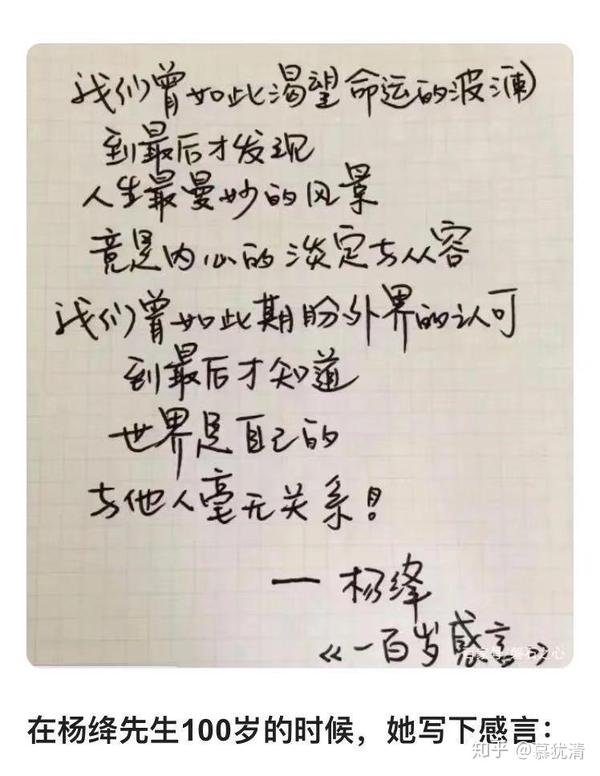 我们曾如此渴望命运的波澜
到最后才发现
人生最曼妙的风景
竟是内心的淡定与从容
我们曾如此期盼外界的认可
到最后才知道
世界是自己的
与他人毫无关系！
— 杨绛
《一百岁感言》
在杨绛先生100岁的时候，她写下感言：
知乎 @慕犹清